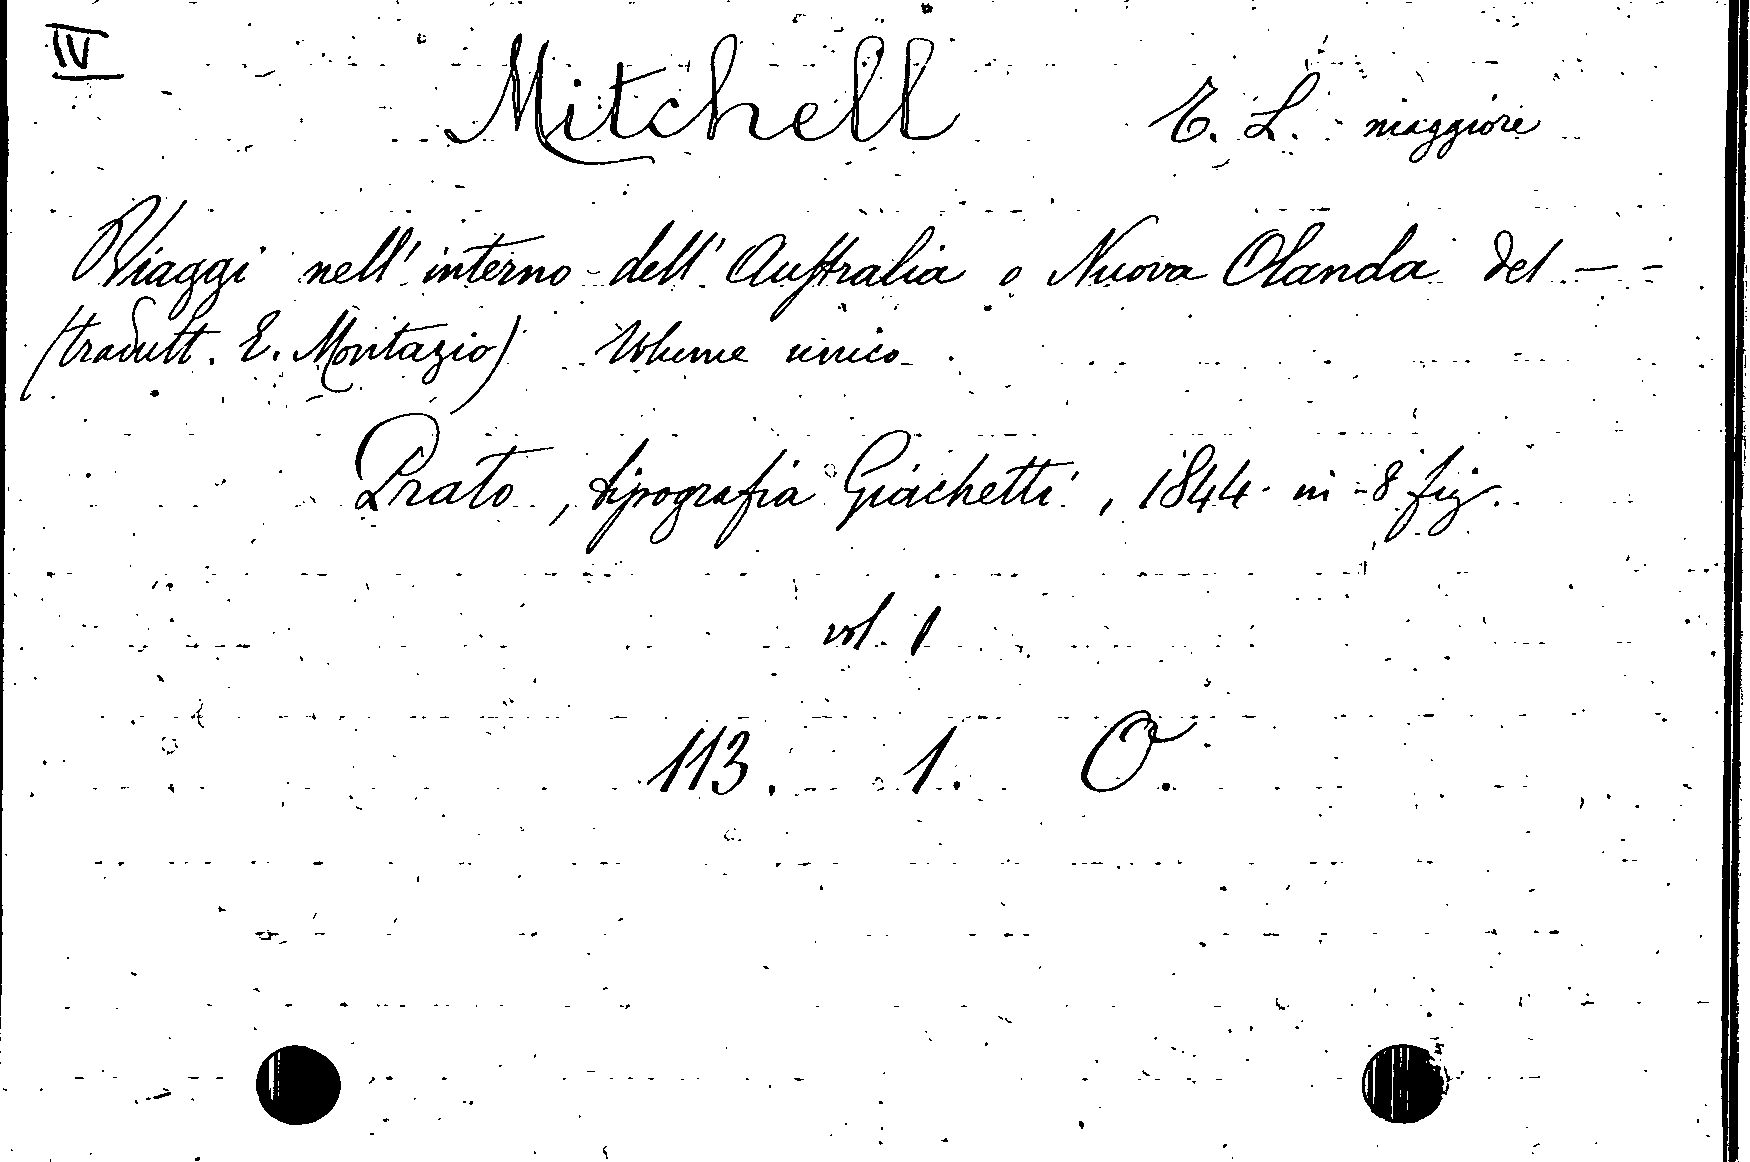 IV
Mitchell T. L. maggiore
Viaggi nell' interno dell' Australia o Nuova Olanda del — -
(tradutt. E. Montazio) Volume unico.
Prato, tipografia Giachetti, 1844. in-8 fig.
vol. 1
113. 1. O.